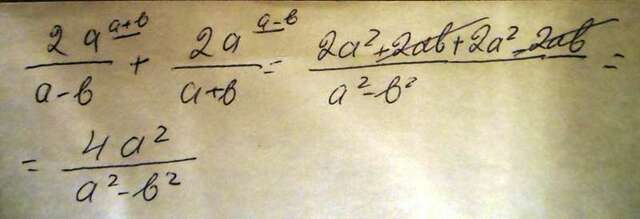 2a^{a+b}/(a-b) + 2a^{a-b}/(a+b) = (2a² + 2ab + 2a² - 2ab)/(a² - b²) =
= 4a²/(a² - b²)